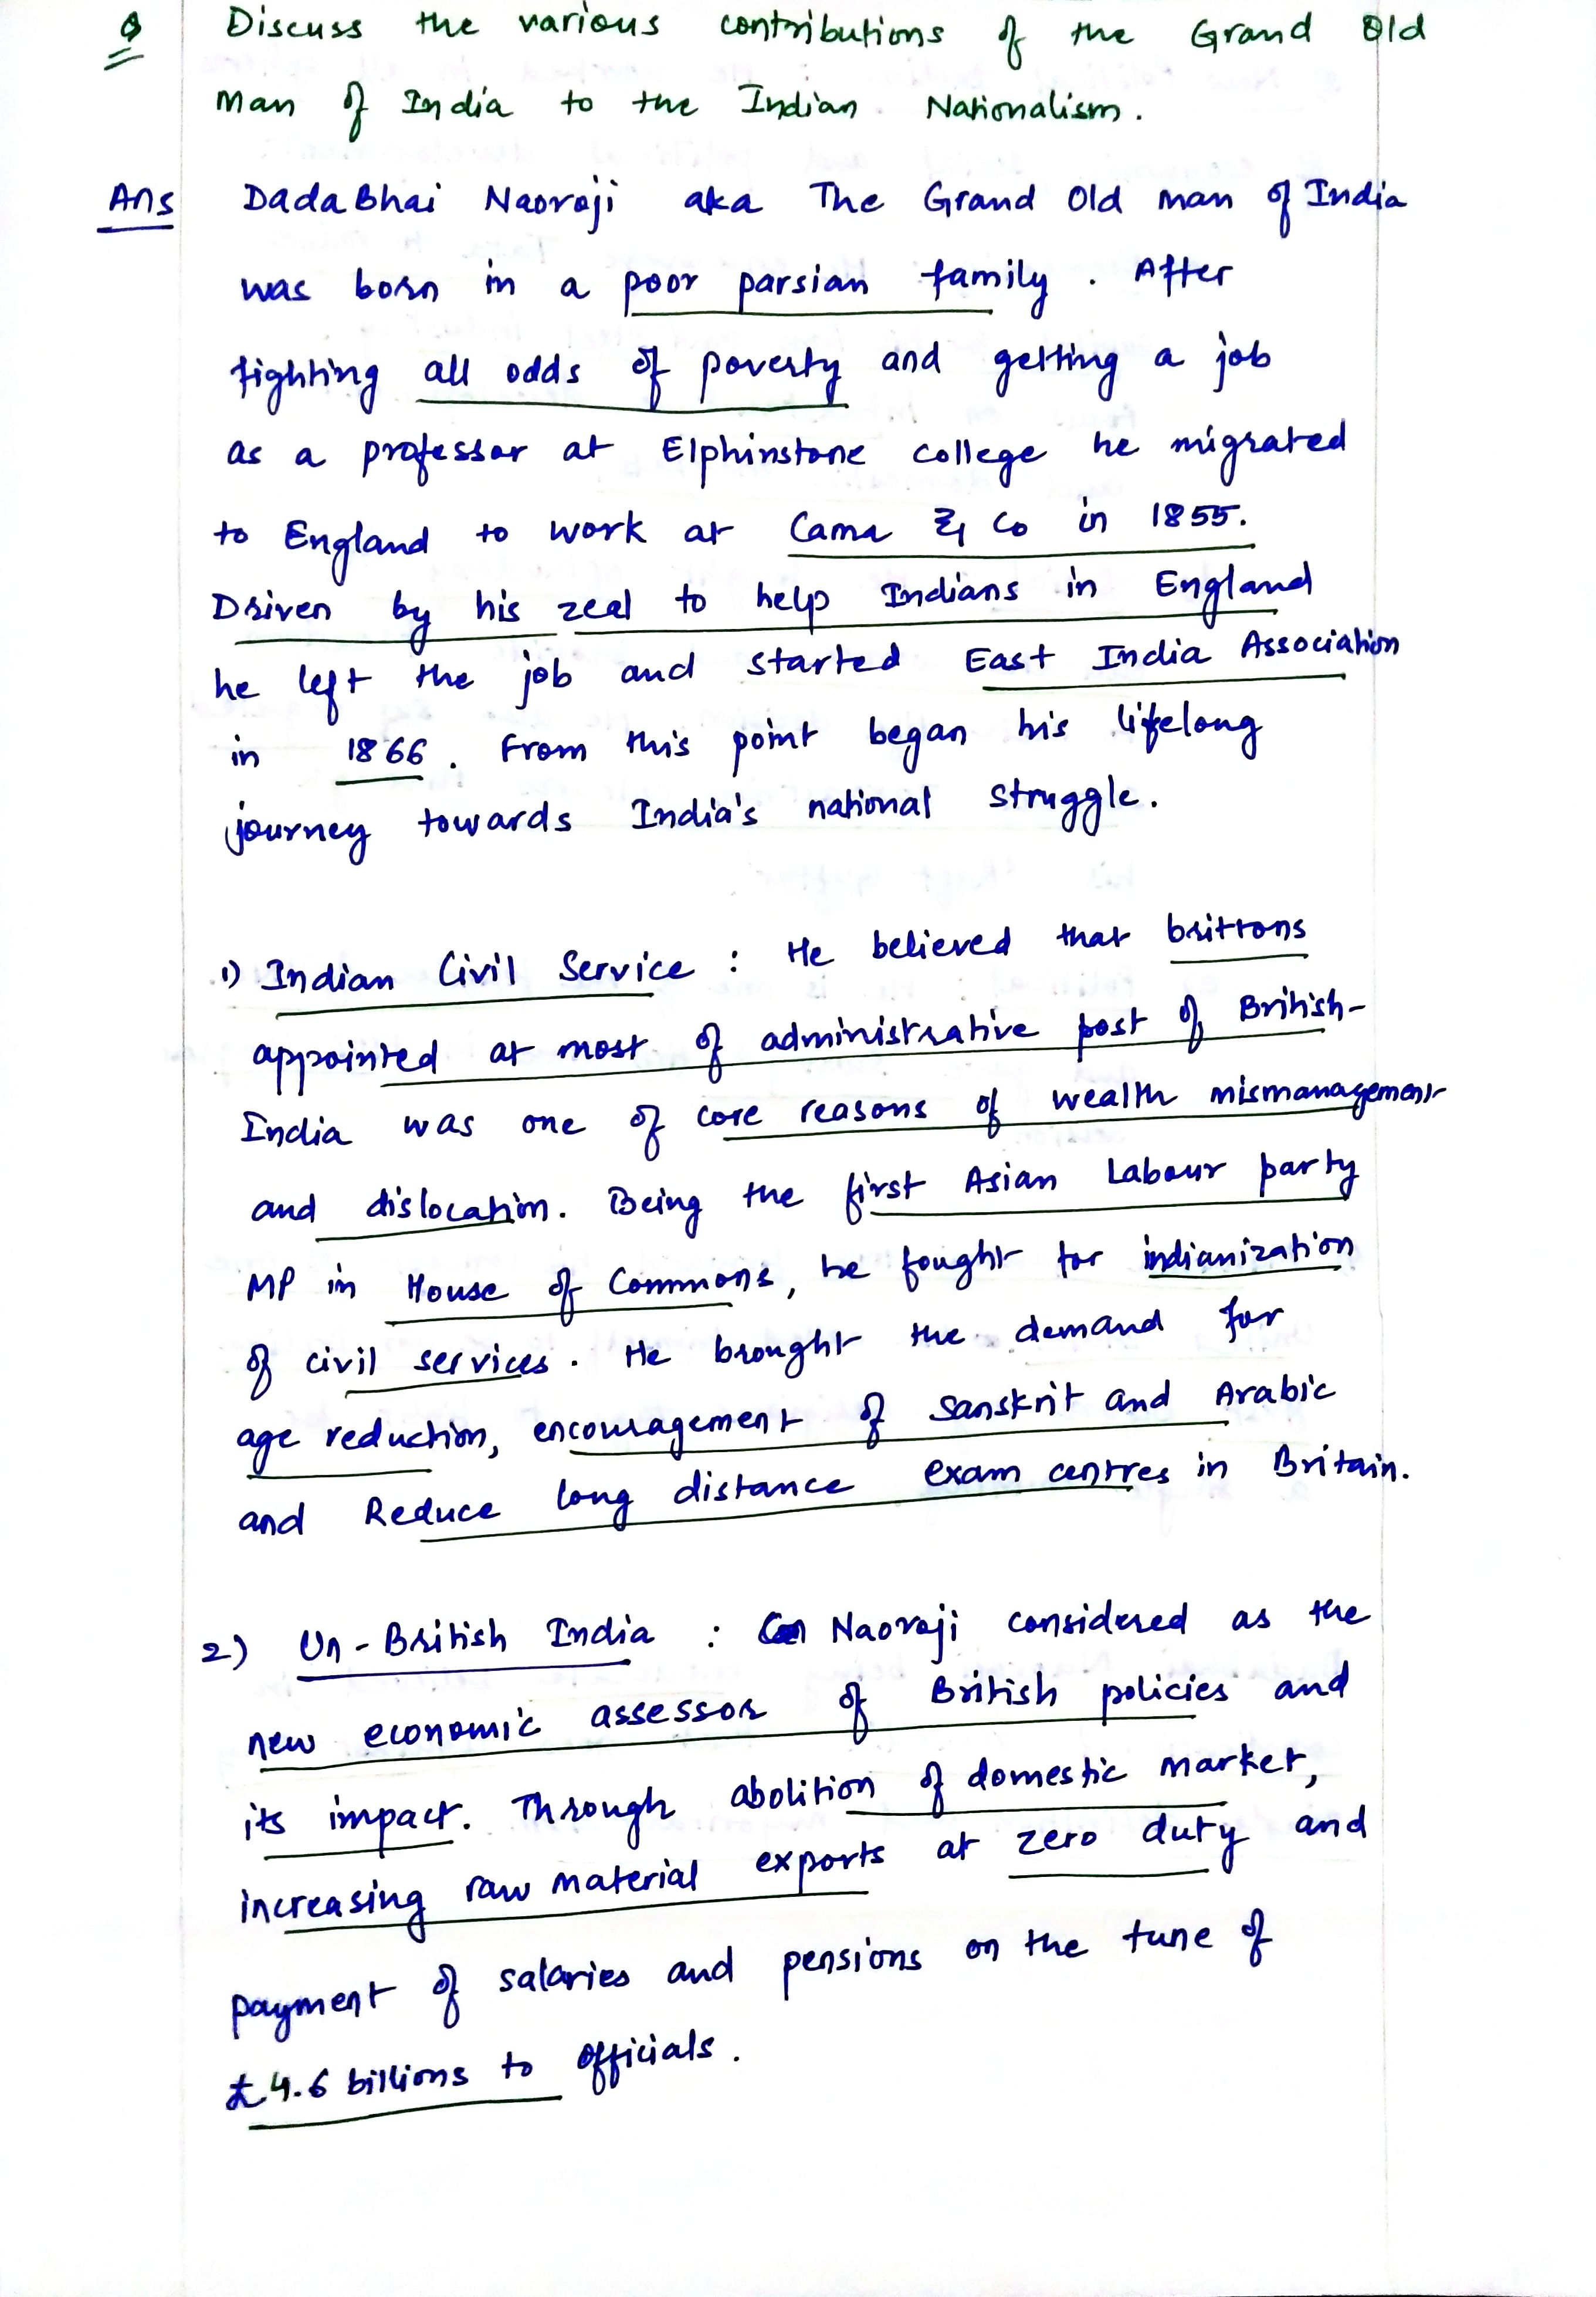 Q Discuss the various contributions of the Grand Old
Man of India to the Indian Nationalism.
Ans Dada Bhai Naoroji aka The Grand Old man of India
was born in a poor parsian family. After
fighting all odds of poverty and getting a job
as a professor at Elphinstone college he migrated
to England to work at Cama & Co in 1855.
Driven by his zeal to help Indians in England
he left the job and started East India Association
in 1866. From this point began his lifelong
journey towards India's national struggle.
1) Indian Civil Service : He believed that brittons
appointed at most of administrative post of British-
India was one of core reasons of wealth mismanagement
and dislocation. Being the first Asian Labour party
MP in House of Commons, he fought for indianization
of civil services. He brought the demand for
age reduction, encouragement of Sanskrit and Arabic
and Reduce long distance exam centres in Britain.
2) Un-British India : Naoroji considered as the
new economic assessor of British policies and
its impact. Through abolition of domestic market,
increasing raw material exports at zero duty and
payment of salaries and pensions on the tune of
£4.6 billions to officials.